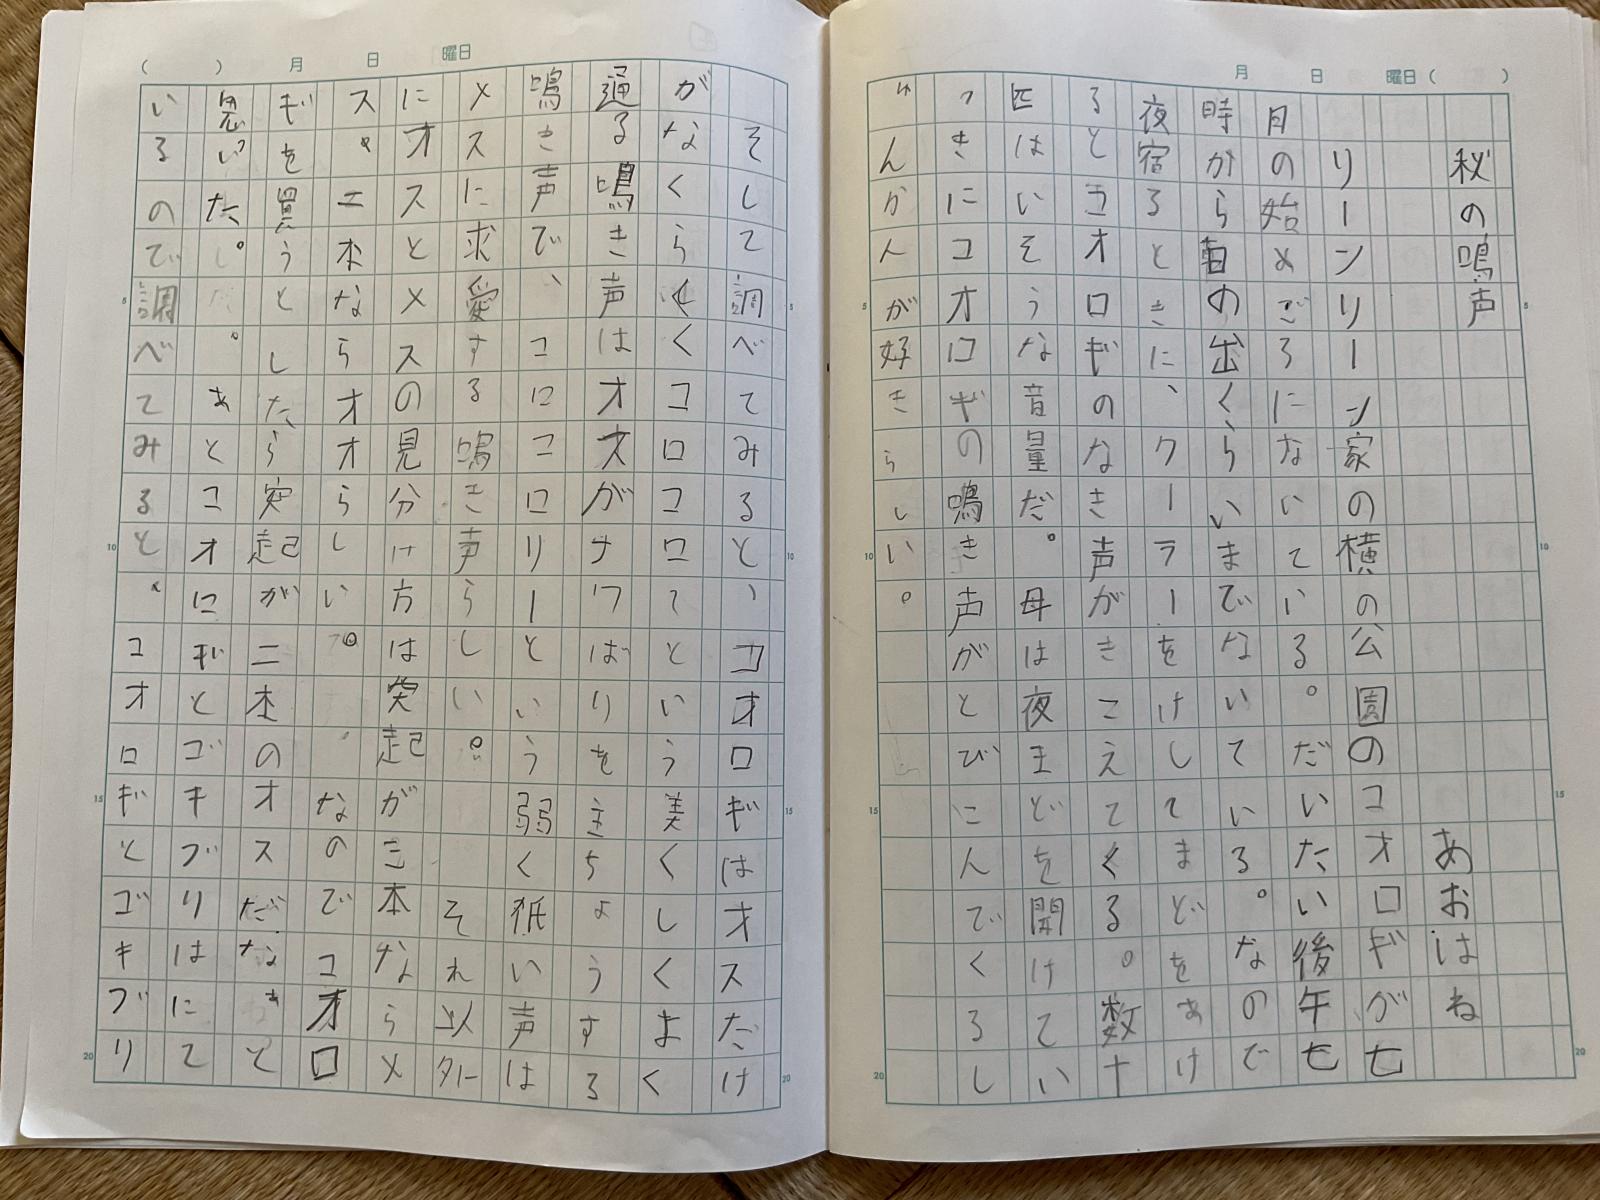 月　日　曜日（　）
秋の鳴声
あおはね
リーンリーン家の横の公園のコオロギが七
月の始めごろにないている。だいたい後午七
時から日の出くらいまでないている。なので
夜宿るときに、クーラーをけしてまどをあけ
るとコオロギのなき声がきこえてくる。数十
匹はいそうな音量だ。母は夜まどを開けてい
っきにコオロギの鳴き声がとびこんでくるし
げんかんが好きらしい。
（　）月　日　曜日
そして調べてみると、コオロギはオスだけ
がなくらしくコロコロてという美くしくよく
通る鳴き声はオスがナワばりを主ちょうする
鳴き声で、コロコロリーという弱く低い声は
メスに求愛する鳴き声らしい。それ以外
にオスとメスの見分け方は突起が三本ならメ
ス。二本ならオスらしい。なのでコオロ
ギを買うとしたら突起が二本のオスだなぁと
思いた。あとコオロギとゴキブリはにて
いるので調べてみると、コオロギとゴキブリ